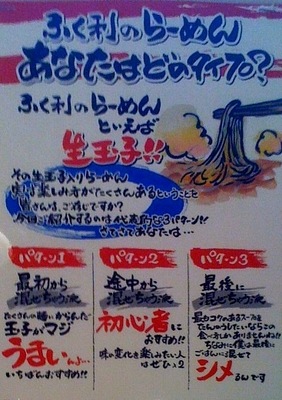 ふく利のらーめん
あなたはどのタイプ?
ふく利のらーめん
といえば
生玉子!!
その生玉子入りらーめん
実は楽しみ方がたくさんあるということを
皆さんは、ご存じですか?
今回ご紹介するのは代表的な3パターン!!
さてさてあなたは…
パターン1
最初から
混ぜちゃう派
たくさんの麺にからんだ
玉子がマジ
うまいんよ…
いちばんおすすめ!!
パターン2
途中から
混ぜちゃう派
初心者に
おすすめ!!
味の変化を楽しみたい人
はぜひ2
パターン3
最後に
混ぜちゃう派
最コクのあるスープを
たんのうしたいならこの
食べ方しかありませんよ!!
ちなみに僕は最後に
ごはんに混ぜて
シメるんです